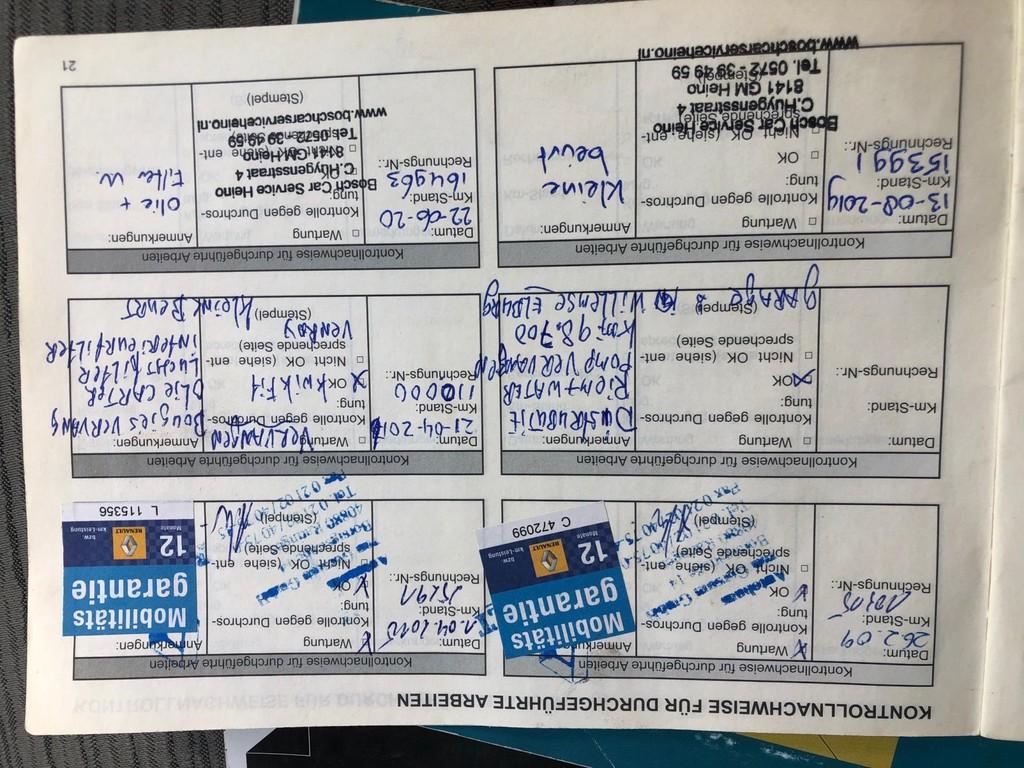 KONTROLLNACHWEISE FÜR DURCHGEFÜHRTE ARBEITEN
Kontrollnachweise für durchgeführte Arbeiten
Datum:
26.2.09
Km-Stand:
Rechnungs-Nr.:
Wartung
Kontrolle gegen Durchros-
tung:
OK
Nicht OK (siehe ent-
sprechende Seite)
(Stempel)
Anmerkungen:
Mobilitäts
garantie
12
Monate
RENAULT
bzw.
km-Leistung
C 472099
Kontrollnachweise für durchgeführte Arbeiten
Datum:
Km-Stand:
Rechnungs-Nr.:
Wartung
Kontrolle gegen Durchros-
tung:
OK
Nicht OK (siehe ent-
sprechende Seite)
(Stempel)
Anmerkungen:
Mobilitäts
garantie
12
Monate
RENAULT
bzw.
km-Leistung
L 115356
Kontrollnachweise für durchgeführte Arbeiten
Datum:
Km-Stand:
Rechnungs-Nr.:
Wartung
Kontrolle gegen Durchros-
tung:
OK
Nicht OK (siehe ent-
sprechende Seite)
(Stempel)
Anmerkungen:
DistRibutie
Riem + WATER
Pomp VERVANGEN
Km 98.700
gARAge WillemSe ElBuRg
Kontrollnachweise für durchgeführte Arbeiten
Datum:
Km-Stand:
110000
Rechnungs-Nr.:
Wartung
VERVANGEN
Kontrolle gegen Durchros-
tung:
OK
kwik Fit
Nicht OK (siehe ent-
sprechende Seite)
VENRAY
(Stempel)
Kleine BeuRT
Anmerkungen:
Bougies VERVANG
Olie CARTER
LuchT filTER
inTERieuRfilTER
Kontrollnachweise für durchgeführte Arbeiten
Datum:
13-08-2019
Km-Stand:
153991
Rechnungs-Nr.:
Wartung
Kontrolle gegen Durchros-
tung:
OK
Nicht OK (siehe ent-
sprechende Seite)
(Stempel)
Bosch Car Service Heino
C.Huygensstraat 4
8141 GM Heino
Tel. 0572 - 39 49 59
www.boschcarserviceheino.nl
Anmerkungen:
kleine
beurt
Kontrollnachweise für durchgeführte Arbeiten
Datum:
22-06-20
Km-Stand:
164963
Rechnungs-Nr.:
Wartung
Kontrolle gegen Durchros-
tung:
OK
Nicht OK (siehe ent-
sprechende Seite)
(Stempel)
Bosch Car Service Heino
C.Huygensstraat 4
8141 GM Heino
Tel. 0572 - 39 49 59
www.boschcarserviceheino.nl
Anmerkungen:
olie +
filter
21